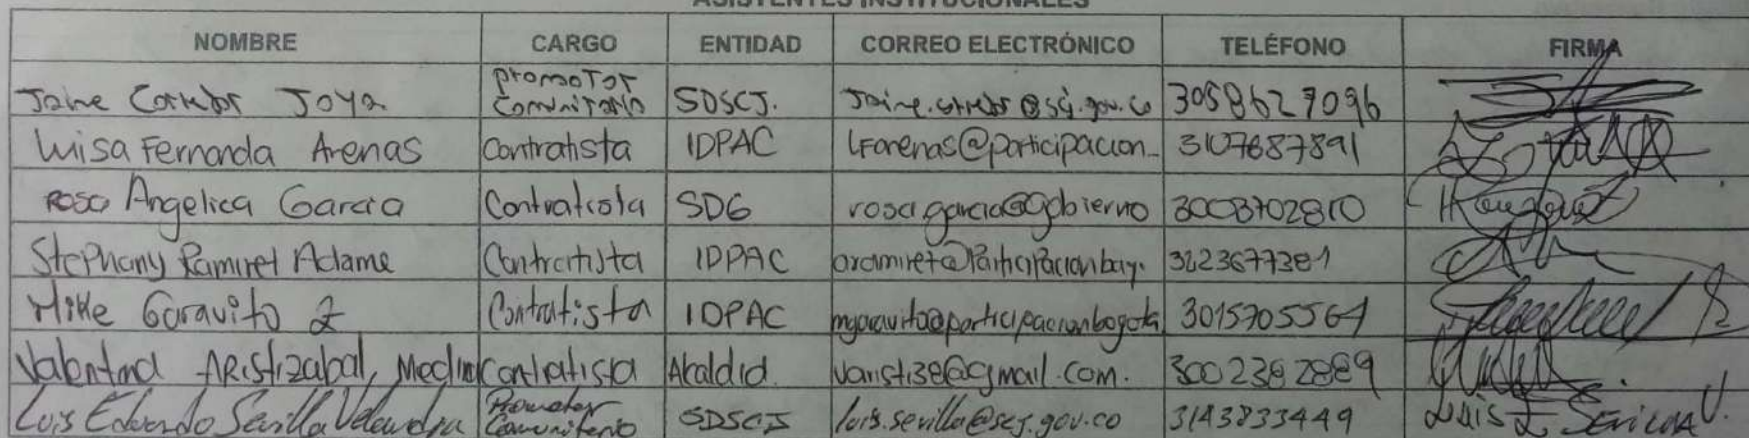 ASISTENTES INSTITUCIONALES
NOMBRE CARGO ENTIDAD CORREO ELECTRÓNICO TELÉFONO FIRMA
Jaime Joya Promotor Comunitario SDSCJ. 3058627096
Luisa Fernanda Arenas Contratista IDPAC LFarenas@participacion 3107687891
Rosa Angelica Garcia Contratista SDG rosa.garcia@gobierno 3008702810
Stephany Ramirez Adame Contratista IDPAC 3223677381
Mike Garavito Z Contratista IDPAC mgaravito@participacionbogota 3015705564
Valentina ARistizabal, Medina Contratista Alcaldia varisti3e@gmail.com. 3002382889
Luis Eduardo Sevilla Velandia Promotor Comunitario SDSCJ luis.sevilla@scj.gov.co 3143833449 Luis E Sevilla V.